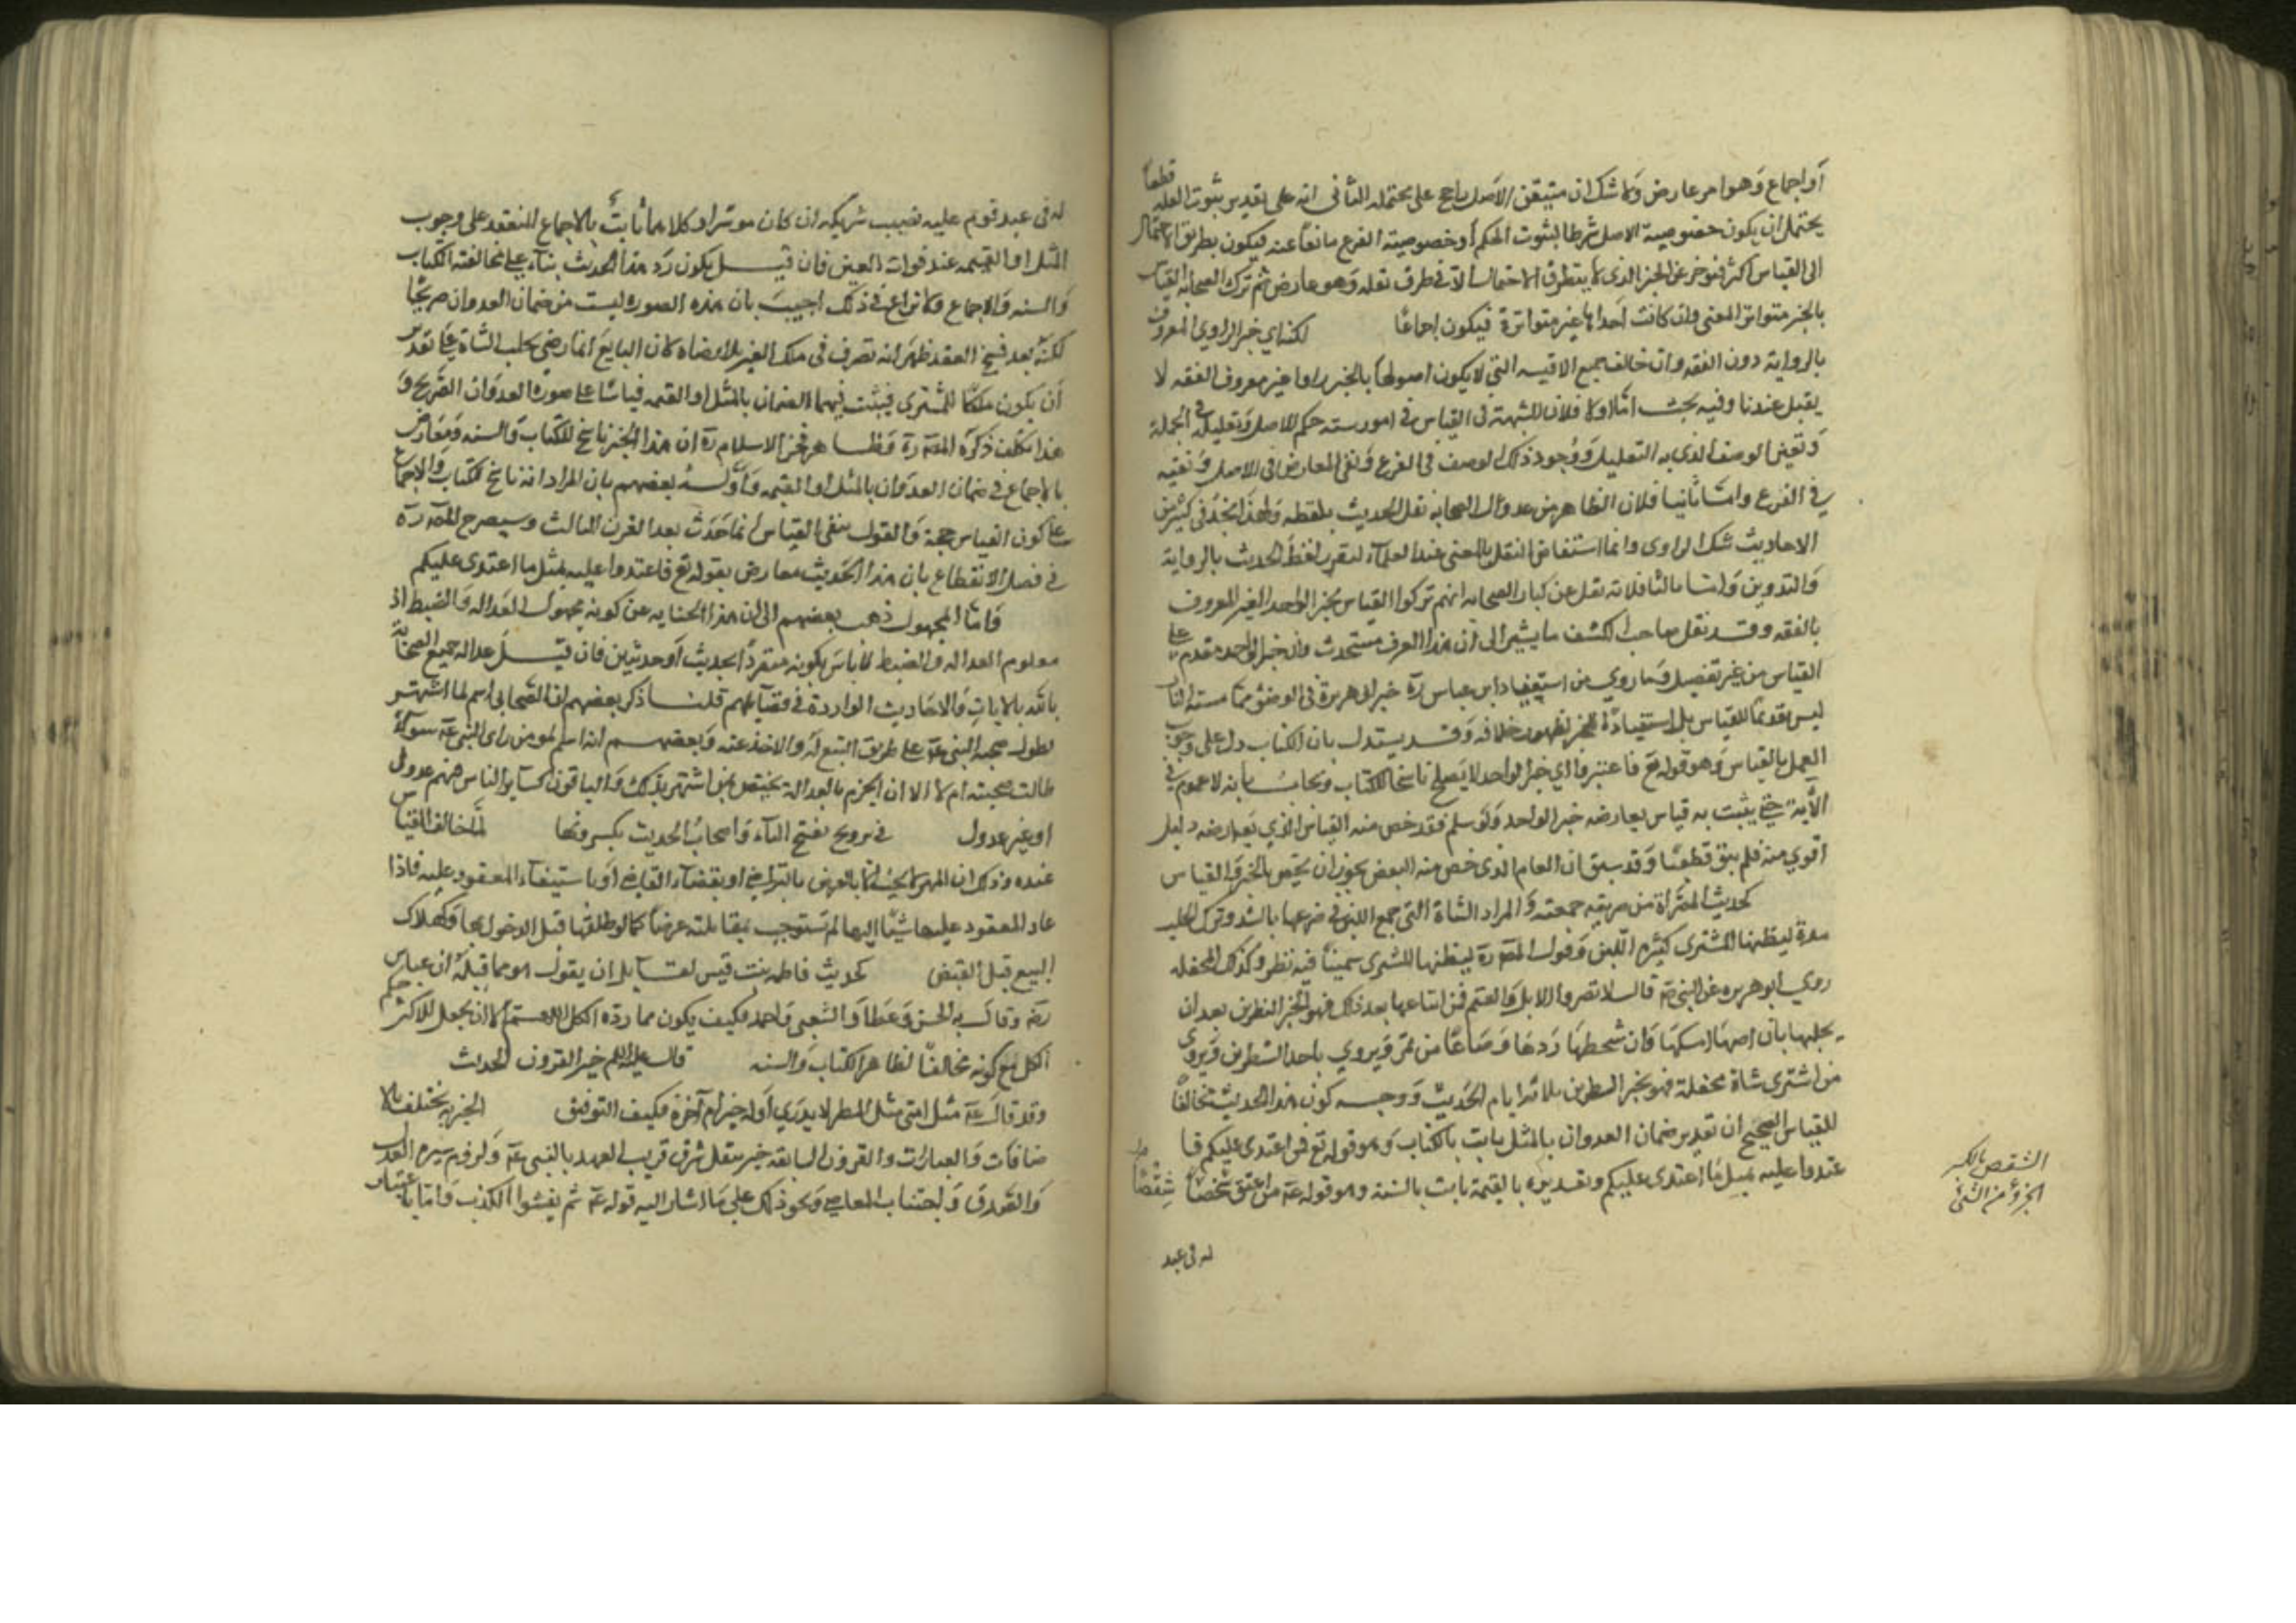 أو اجماع وهو امر عارض ولا شك ان متيقن الاصل راجح على محتمله الثانى انه على تقدير ثبوت العله قطعا
يحتمل ان يكون خصوصية الاصل شرطا لثبوت الحكم أو خصوصية الفرع مانعا عنه فيكون بطريق الاحتمال
الى القياس اكثر فيؤخر عن الخبر الذى لا يتطرق الاحتمال الا فى طرف نقله وهو عارض ثم ترك الصحابه القياس
بالخبر متواتر المعنى وان كانت احدا غير متواترة فيكون اجماعا لكن اي خبر الراوي المعروف
بالرواية دون الفقه وان خالف جميع الاقيسه التي لا يكون اصولها بالخبر راوها غير معروف الفقه لا
يقبل عندنا وفيه بحث اما اولا فلان الشبهة فى القياس فى امور سته حكم الاصل وتعليله فى الجملة
وتعين الوصف الذى به التعليل ووجود ذلك الوصف فى الفرع ونفى المعارض فى الاصل ونفيه
فى الفرع واما ثانيا فلان الظاهر من عدول الصحابه نقل الحديث بلفظه ولهذا نجد فى كثير من
الاحاديث شك الراوى وانما استفاض النقل بالمعنى عند العلماء لتقرر لفظ الحديث بالرواية
والتدوين واما ثالثا فلانه نقل عن كبار الصحابه انهم تركوا القياس بخبر الواحد الغير المعروف
بالفقه وقد نقل صاحب الكشف ما يشير الى أن هذا الفرق مستحدث وان خبر الواحد مقدم على
القياس من غير تفصيل وما روي من استبعاد ابن عباس رة خبر ابى هريرة فى الوضوء مما مسته النار
ليس تقديما للقياس بل استبعادا للخبر لظهور خلافه وقد يستدل بان الكتاب دل على وجوب
العمل بالقياس وهو قوله تع فاعتبروا اي خبر الواحد لا يصلح ناسخا للكتاب ويجاب بانه لا عموم في
الآية حتى يثبت به قياس يعارضه خبر الواحد ولو سلم فقد خص منه القياس الذي يعارضه دليل
اقوي منه فلم يبق قطعيا وقد سبق ان العام الذى خص منه البعض يجوز ان يخص بالخبر والقياس
كحديث المصراة من صريته جمعته والمراد الشاة التى جمع اللبن فى ضرعها بالشد وترك الحلب
مدة ليظنها المشترى كثيرة اللبن وقول المص رة ليظنها المشترى سمينا فيه نظر وكذلك المحفله
روي ابو هريره عن النبى عة قال لا تصروا الابل والغنم فمن ابتاعها بعد ذلك فهو بخير النظرين بعد ان
يحلبها بان رضيها امسكها وان سخطها ردها وصاعا من تمر ويروي باحد النظرين ويروى
من اشترى شاة محفلة فهو بخير النظرين ثلاثة ايام الحديث ووجه كون هذا الحديث مخالفا
للقياس الصحيح ان تقدير ضمان العدوان بالمثل ثابت بالكتاب وهو قوله تع فمن اعتدى عليكم فا
عتدوا عليه بمثل ما اعتدى عليكم وتقديره بالقيمة ثابت بالسنة وهو قوله عة من اعتق شقصا
شقصا
الشقص بالكسر
الجزؤ من الشئ
له فى عبد
له فى عبد قوم عليه نصيب شريكه ان كان موسرا وكلاهما ثابت بالاجماع المنعقد على وجوب
المثل او القيمه عند فوات العين فان قيل يكون رد هذا الحديث بناء على مخالفته الكتاب
والسنه والاجماع ولا نزاع فى ذلك اجيب بان هذه الصوره ليست من ضمان العدوان صريحا
لكنه بعد فسخ العقد ظهر انه تصرف فى ملك الغير بلا رضاه لان البايع انما رضي بحلب الشاة على تقدير
أن يكون ملكا للمشترى فيثبت فيها الضمان بالمثل او القيمه قياسا على صورة العدوان الصريح و
هذا تكلف ذكره المص رة وظاهر فخر الاسلام رة ان هذا الخبر ناسخ للكتاب والسنه ومعارض
بالاجماع فى ضمان العدوان بالمثل او القيمه وأوله بعضهم بان المراد انه ناسخ للكتاب والاجماع
على كون القياس حجة والقول بنفى القياس انما حدث بعد القرن الثالث وسيصرح المص رة
فى فصل الانقطاع بان هذا الحديث معارض بقوله تع فاعتدوا عليه بمثل ما اعتدى عليكم
واما المجهول ذهب بعضهم الى ان هذا كناية عن كونه مجهول العداله والضبط اذ
معلوم العداله والضبط لا باس بكونه متفردا بحديث أو حديثين فان قيل عداله جميع الصحابة
ثابته بالايات والاحاديث الواردة فى فضايلهم قلنا ذكر بعضهم ان الصحابى اسم لما اشتهر
بطول صحبه النبى عة على طريق التتبع له والاخذ عنه وبعضهم انه اسم لمومن راى النبى عة سواء
طالت صحبته ام لا الا ان الجزم بالعدالة يختص بمن اشتهر بذلك والباقون كسائر الناس فيهم عدول
او غير عدول فى بروع بفتح الباء واصحاب الحديث بكسرونها لما خالف القياس
عنده وذلك ان المهر لا يجب الا بالفرض بالتراضي او بقضاء القاضي أو باستيفاء المعقود عليه فاذا
عاد المعقود عليها شيئا اليها لم تستوجب بمقابلته عوضا كما لو طلقها قبل الدخول بها وكهلاك
البيع قبل القبض كحديث فاطمه بنت قيس لقائل ان يقول هو مما قبله ان عباس
رضه وقال به الحسن وعطا والشعبى واحمد فكيف يكون مما رده الكل اللهم الا ان يجعل للاكثر حكم
الكل مع كونه مخالفا لظاهر الكتاب والسنه قال عليه السلام خير القرون الحديث
وقد قال عة مثل امتى مثل المطر لا يدري أوله خير ام آخره فكيف التوفيق الخيريه تختلف بالا
ضافات والعبارات والقرون السابقه خير بنقل شرف قريب العهد بالنبى عة ولزوم سيره العدل
والصدق واجتناب المعاصي ونحو ذلك على ما اشار اليه قوله عة ثم يفشوا الكذب واما باعتبار